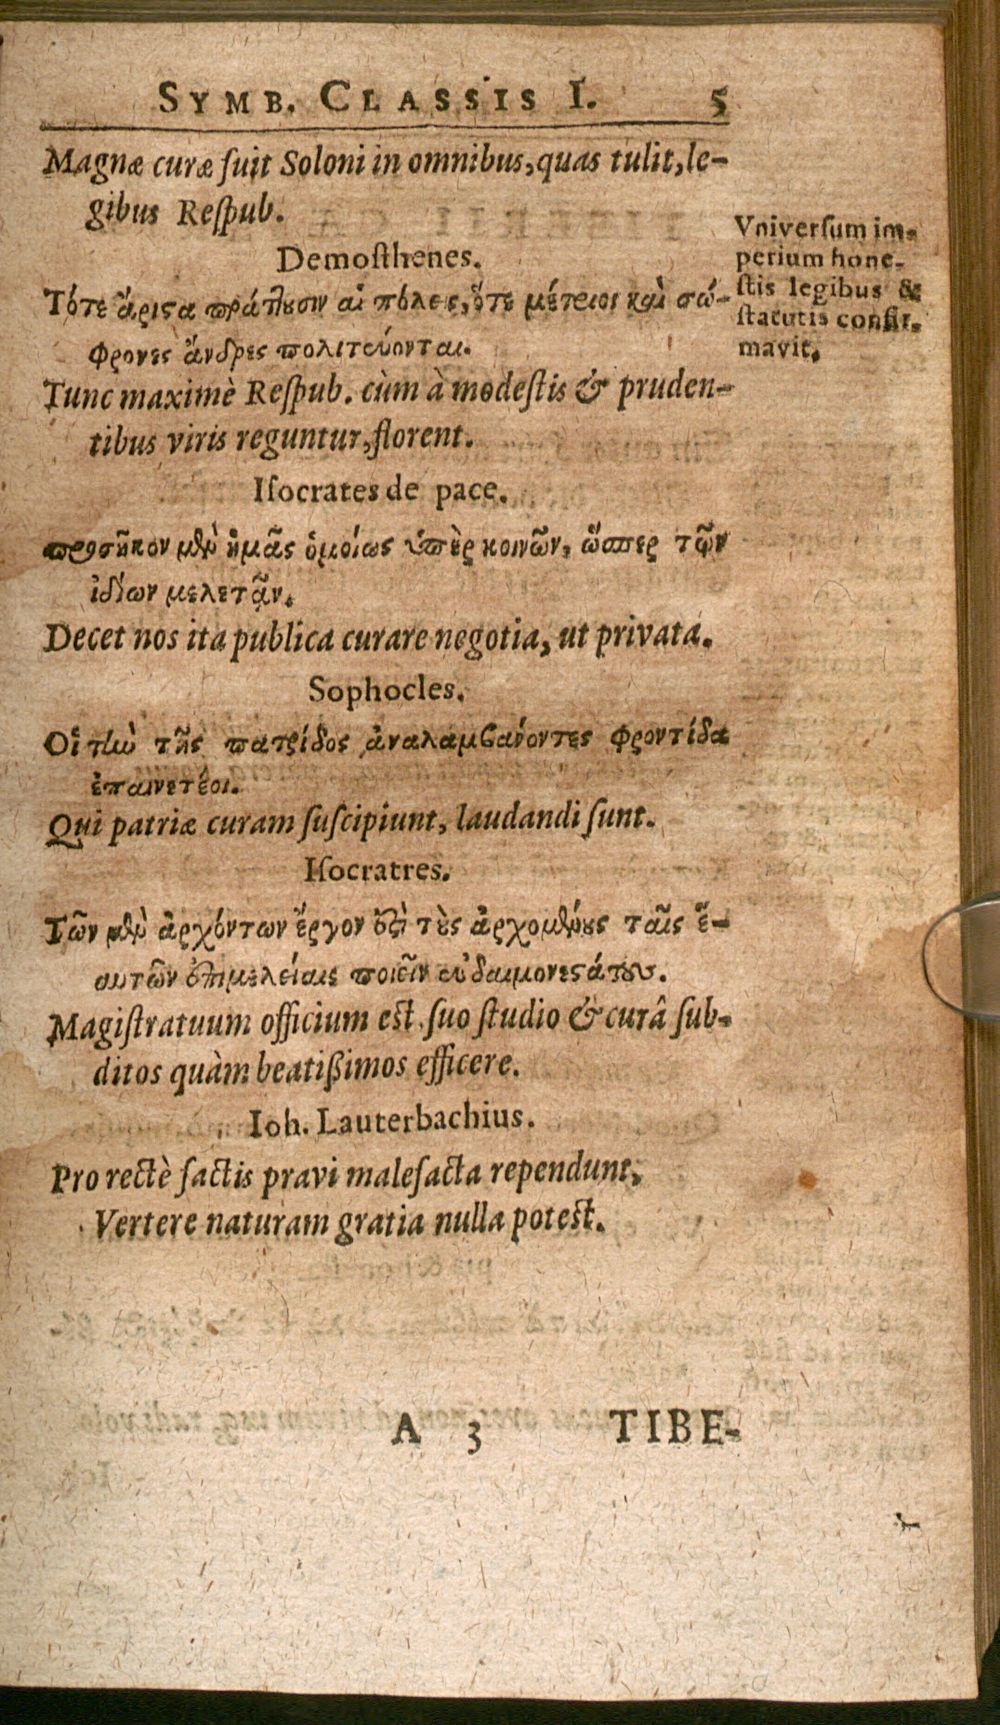 SYMB. CLASSIS I. 5
Magnæ curæ fuit Soloni in omnibus, quas tulit, le-
gibus Reſpub.
Demoſthenes.
Τότε ἄριϛα πράτ̈ουσιν αἱ πόλεις, ὅτε μέτριοι καὶ σώ-
φρονες ἄνδρες πολιτεύονται.
Tunc maximè Reſpub. cùm à modeſtis & pruden-
tibus viris reguntur, florent.
Iſocrates de pace.
προσῆκον μὲν ἡμᾶς ὁμοίως ὑπὲρ κοινῶν, ὥσπερ τῶν
ἰδίων μελετᾷν.
Decet nos ita publica curare negotia, ut privata.
Sophocles.
Οἱ τὴν τῆς πατρίδος ἀναλαμβανόντες φροντίδα
ἐπαινετέοι.
Qui patriæ curam ſuſcipiunt, laudandi ſunt.
Iſocratres.
Τῶν μὲν ἀρχόντων ἔργον ἐστὶ τοὺς ἀρχομένους ταῖς ἑ-
αυτῶν ἐπιμελείαις ποιεῖν εὐδαιμονεϛάτους.
Magiſtratuum officium eſt, ſuo ſtudio & curâ ſub-
ditos quàm beatißimos efficere.
Ioh. Lauterbachius.
Pro rectè factis pravi malefacta rependunt,
Vertere naturam gratia nulla poteſt.
Vniverſum im-
perium hone-
ſtis legibus &
ſtatutis confir-
mavit.
A 3 TIBE-